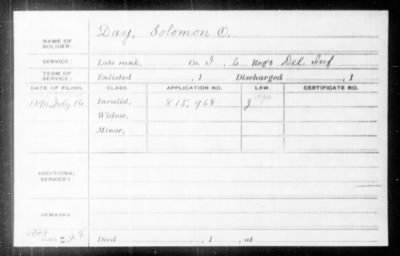 NAME OF SOLDIER: Day, Solomon O.
SERVICE: Late rank, Co. I, 6 Reg't Del. Inf
TERM OF SERVICE: Enlisted , 1 Discharged , 1
DATE OF FILING. CLASS. APPLICATION NO. LAW. CERTIFICATE NO.
1890, July 16 Invalid, 815,968
Widow,
Minor,
ADDITIONAL SERVICES:
REMARKS:
Died , 1 , at